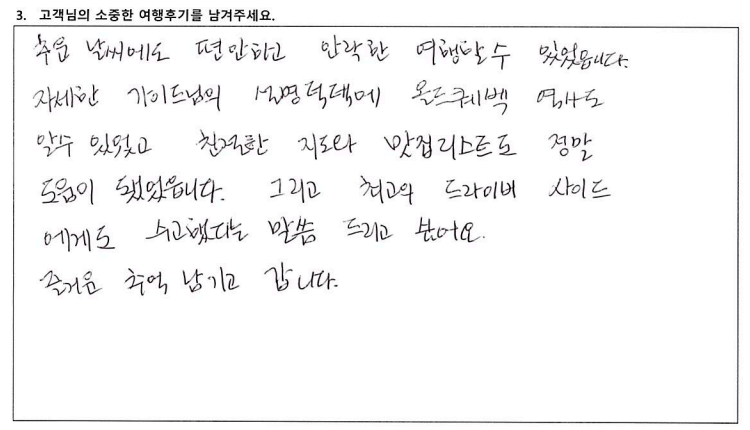 3. 고객님의 소중한 여행후기를 남겨주세요.
추운 날씨에도 편안하고 안락한 여행할수 있었읍니다.
자세한 가이드님의 설명덕택에 올드퀘벡 역사도
알수 있었고 친절한 지도와 맛집리스트도 정말
도움이 됐었읍니다. 그리고 최고의 드라이버 사이드
에게도 수고했다는 말씀 드리고 싶어요.
즐거운 추억 남기고 갑니다.